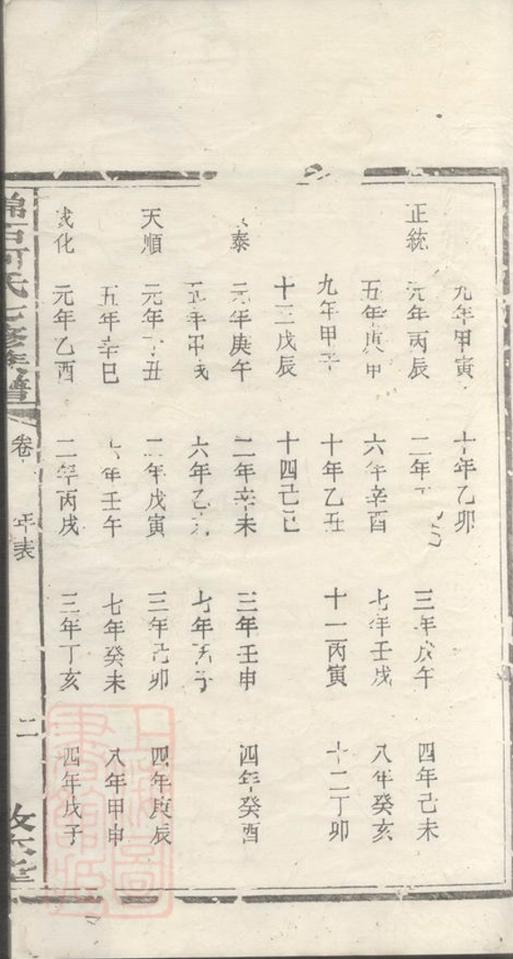 九年甲寅 十年乙卯
正統 元年丙辰 二年丁巳 三年戊午 四年己未
五年庚申 六年辛酉 七年壬戌 八年癸亥
九年甲子 十年乙丑 十一丙寅 十二丁卯
十三戊辰 十四己巳
泰 元年庚午 二年辛未 三年壬申 四年癸酉
五年甲戌 六年乙亥 七年丙子
天順 元年丁丑 二年戊寅 三年己卯 四年庚辰
五年辛巳 六年壬午 七年癸未 八年甲申
成化 元年乙酉 二年丙戌 三年丁亥 四年戊子
氏七修族譜 卷 年表 二 敦
上海圖書館藏